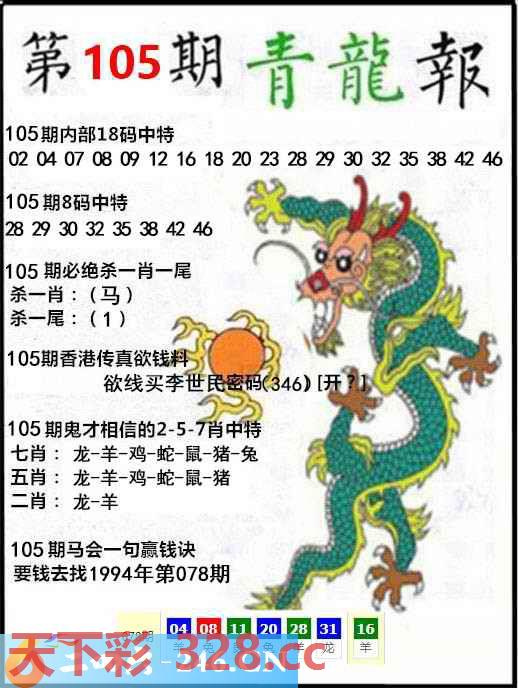 第105期青龍報
105期内部18码中特
02 04 07 08 09 12 16 18 20 23 28 29 30 32 35 38 42 46
105期8码中特
28 29 30 32 35 38 42 46
105期必绝杀一肖一尾
杀一肖：（马）
杀一尾：（1）
105期香港传真欲钱料
欲线买李世民密码(346) [开？]
105期鬼才相信的2-5-7肖中特
七肖：龙-羊-鸡-蛇-鼠-猪-兔
五肖：龙-羊-鸡-蛇-鼠-猪
二肖：龙-羊
105期马会一句赢钱诀
要钱去找1994年第078期
04 08 11 20 28 31 16
羊 兔 羊 龙 羊
天下彩-328.cc